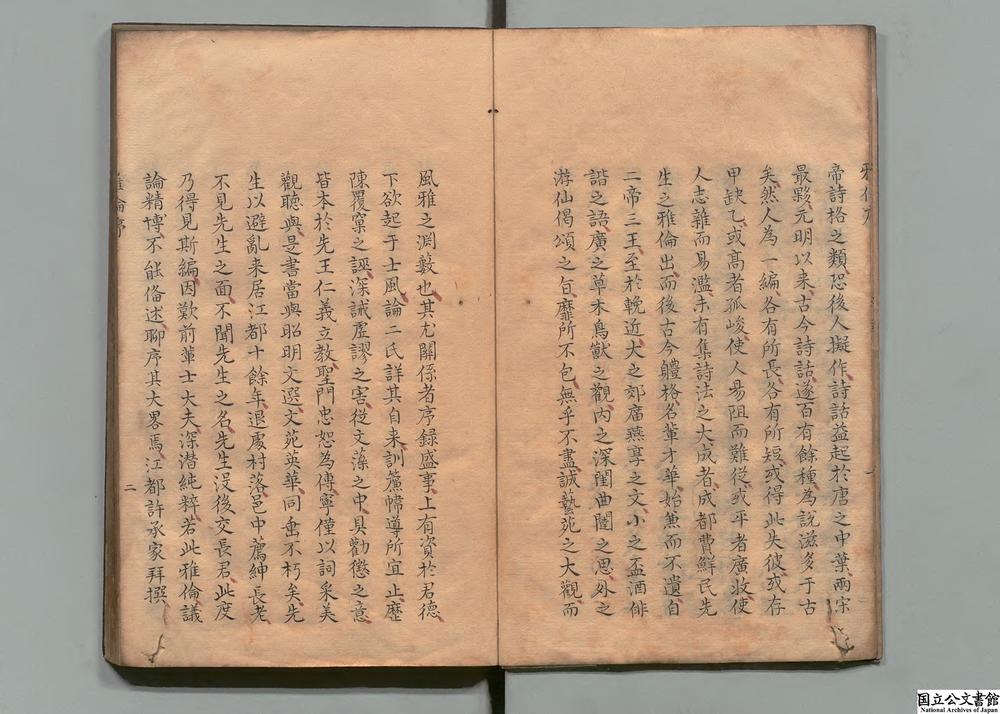 帝詩格之類恐後人擬作詩話益起於唐之中葉兩宋
最夥元明以来古今詩話遂百有餘種為說滋多于古
矣然人為一編各有所長各有所短或得此失彼或存
甲缺乙或髙者孤峻使人易阻而難從或平者廣收使
人志雜而易濫未有集詩法之大成者成都費鮮民先
生之雅倫出而後古今軆格名輩才華始兼而不遺自
二帝三王至於輓近大之郊廟燕享之文小之盃酒俳
諧之語廣之草木鳥獸之觀內之深閨曲闥之思外之
游仙偈頌之㫖靡所不包無乎不盡誠藝苑之大觀而
風雅之淵藪也其尤關係者序録盛事上有資於君德
下欲起于士風論二氏詳其自来訓簾幃導所宜止歷
陳覆窠之誣深誡虚謬之害從文藻之中具勸懲之意
皆本於先王仁義立教聖門忠恕為傳寧僅以詞采美
觀聽與是書當與昭明文選文苑英華同垂不朽矣先
生以避亂来居江都十餘年退處村落邑中薦紳長老
不見先生之面不聞先生之名先生没後交長君此度
乃得見斯編因歎前輩士大夫深潜純粹若此雅倫議
論精博不能偹述聊序其大畧焉江都許承家拜撰
二
国立公文書館
National Archives of Japan